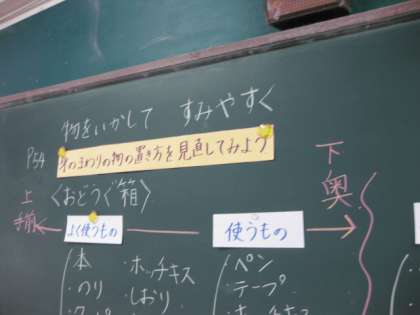 物をいかして すみやすく
P54
身のまわりの物の置き方を見直してみよう
上 手前
〈おどうぐ箱〉
下 奥
よく使うもの
使うもの
・本 ・ホッチキス
・のり ・しおり
・ペン
・テープ